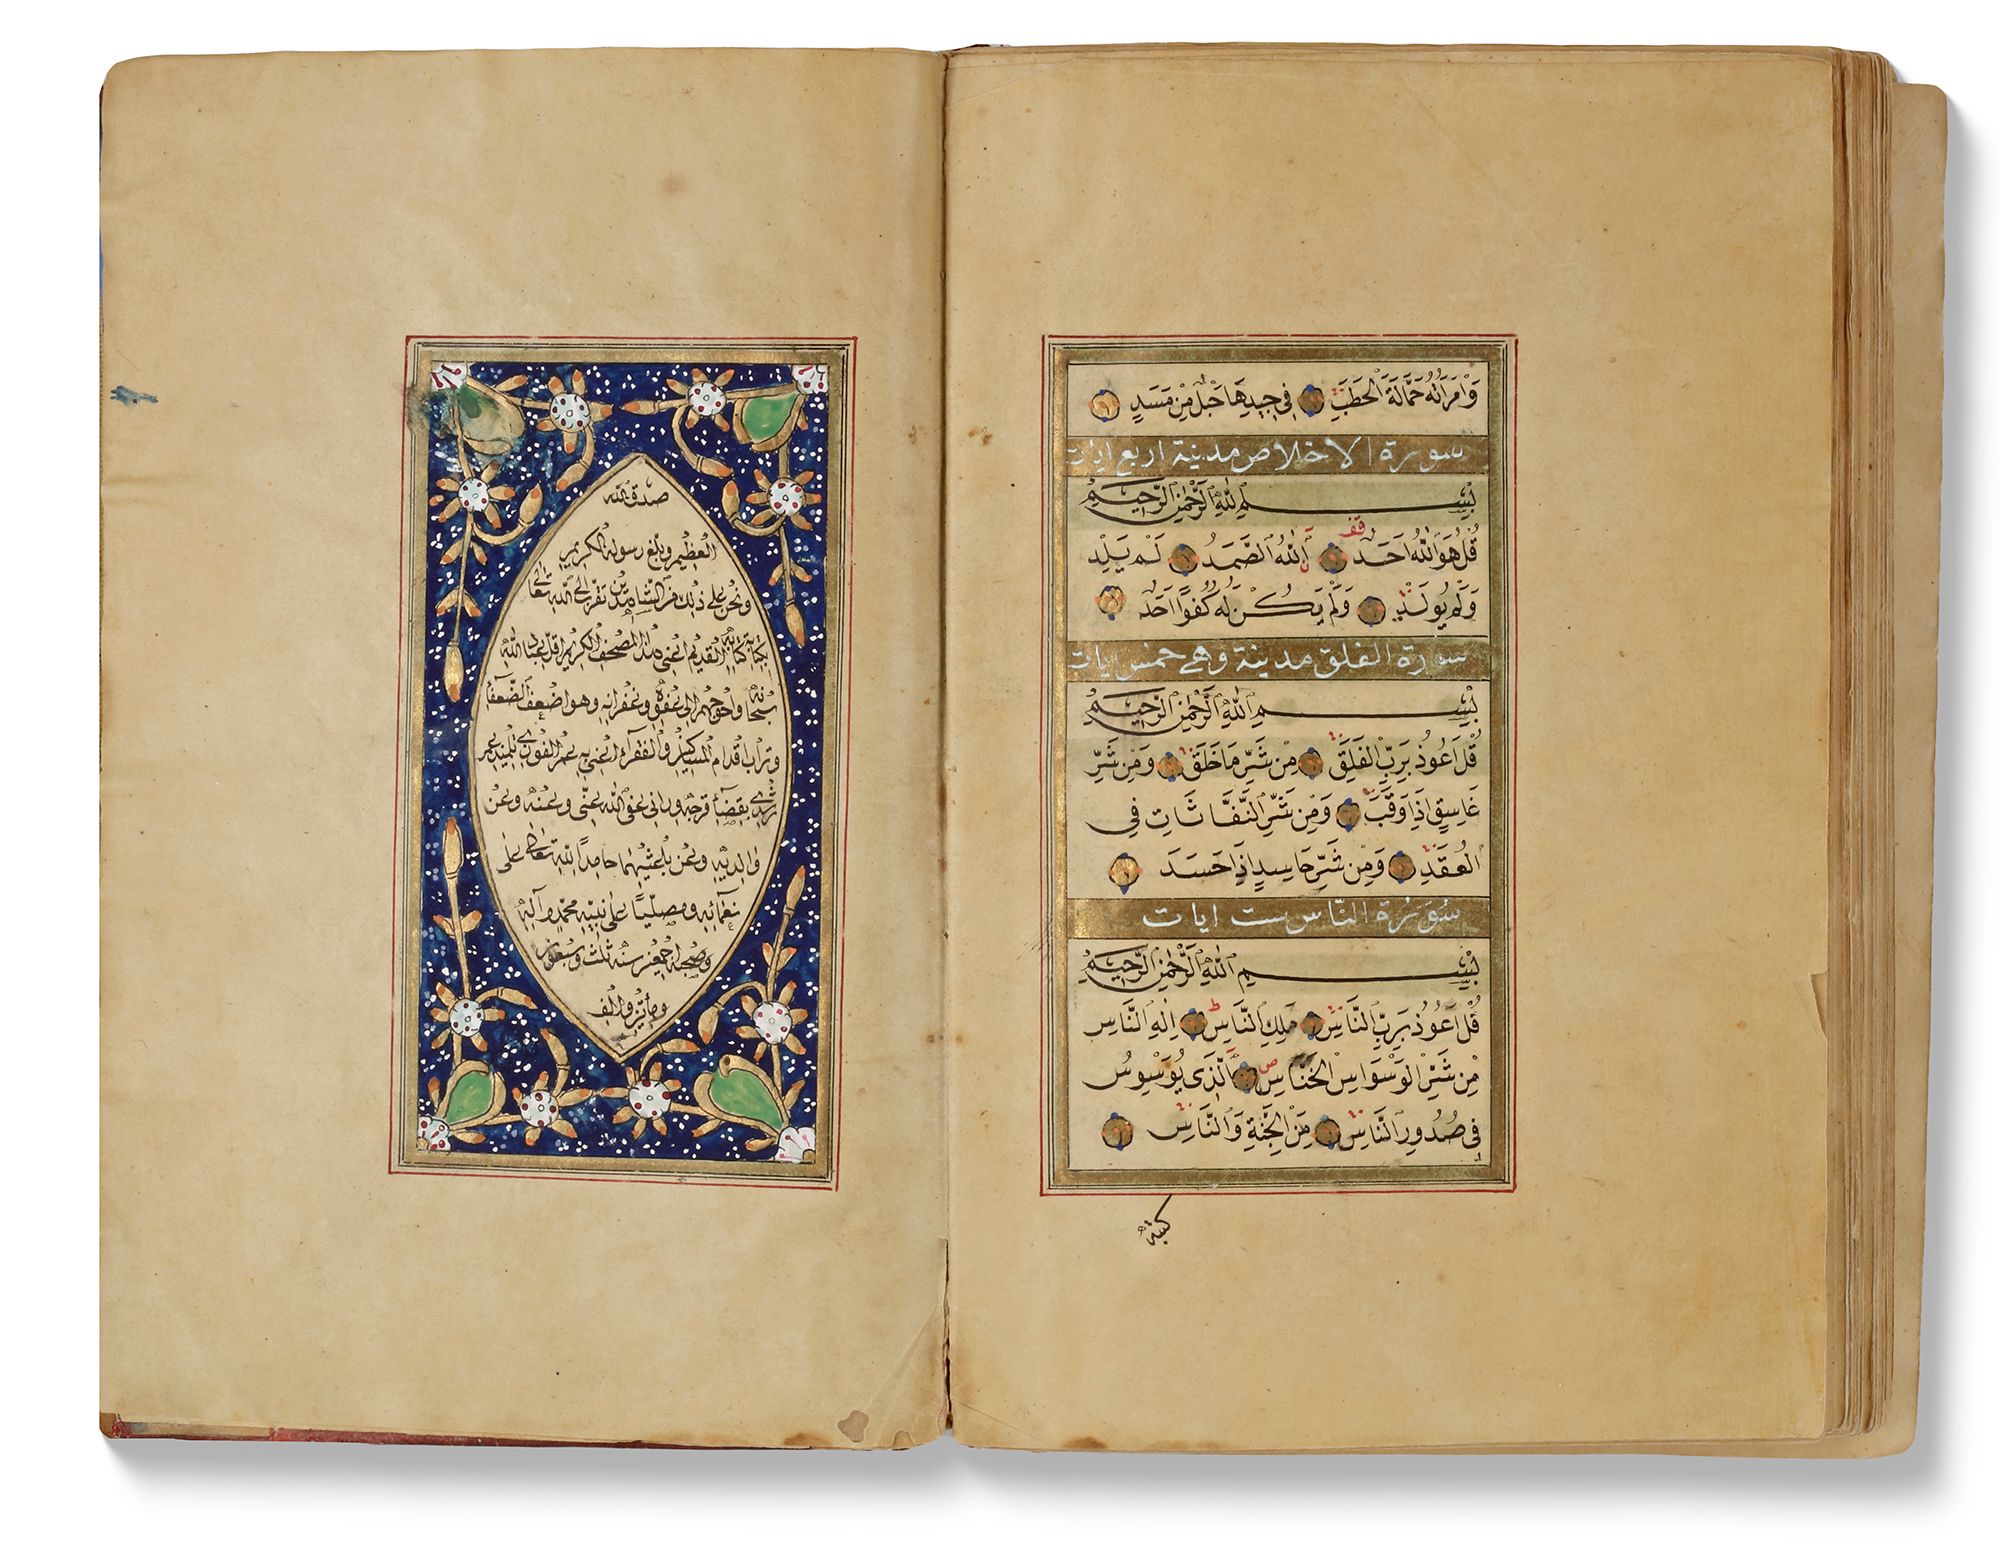 وَامْرَأَتُهُ حَمَّالَةَ الْحَطَبِ فِي جِيدِهَا حَبْلٌ مِنْ مَسَدٍ
سورة الاخلاص مدينة اربع ايات
بِسْمِ اللهِ الرَّحْمٰنِ الرَّحِيمِ
قُلْ هُوَ اللهُ اَحَدٌ قف اَللهُ الصَّمَدُ لَمْ يَلِدْ
وَلَمْ يُولَدْ وَلَمْ يَكُنْ لَهُ كُفُوًا اَحَدٌ
سورة الفلق مدينة وهي خمس ايات
بِسْمِ اللهِ الرَّحْمٰنِ الرَّحِيمِ
قُلْ اَعُوذُ بِرَبِّ الْفَلَقِ مِنْ شَرِّ مَا خَلَقَ وَمِنْ شَرِّ
غَاسِقٍ اِذَا وَقَبَ وَمِنْ شَرِّ النَّفَّاثَاتِ فِي
الْعُقَدِ وَمِنْ شَرِّ حَاسِدٍ اِذَا حَسَدَ
سورة الناس ست ايات
بِسْمِ اللهِ الرَّحْمٰنِ الرَّحِيمِ
قُلْ اَعُوذُ بِرَبِّ النَّاسِ مَلِكِ النَّاسِ اِلٰهِ النَّاسِ
مِنْ شَرِّ الْوَسْوَاسِ الْخَنَّاسِ اَلَّذِي يُوَسْوِسُ
فِي صُدُورِ النَّاسِ مِنَ الْجِنَّةِ وَالنَّاسِ
صدق الله
العظيم وبلغ رسوله الكريم
ونحن على ذلك من الشاهدين تقرب الى الله تعالى
بكتابة كتابه القديم اعني هذا المصحف الكريم اقل عباد الله
سبحانه واحوجهم الى عفوه وغفرانه وهو اضعف الضعفا
وتراب اقدام المساكين والفقراء اعني به عمر الفوزي تلميذ عمر
رشدي بقضاء عفى الله عني وعنه وعن
والديه وعن حامدا لله تعالى على
نعمائه ومصليا على نبيه محمد وآله
وصحبه اجمعين سنه ثلث وسبعين
ومأتين والف